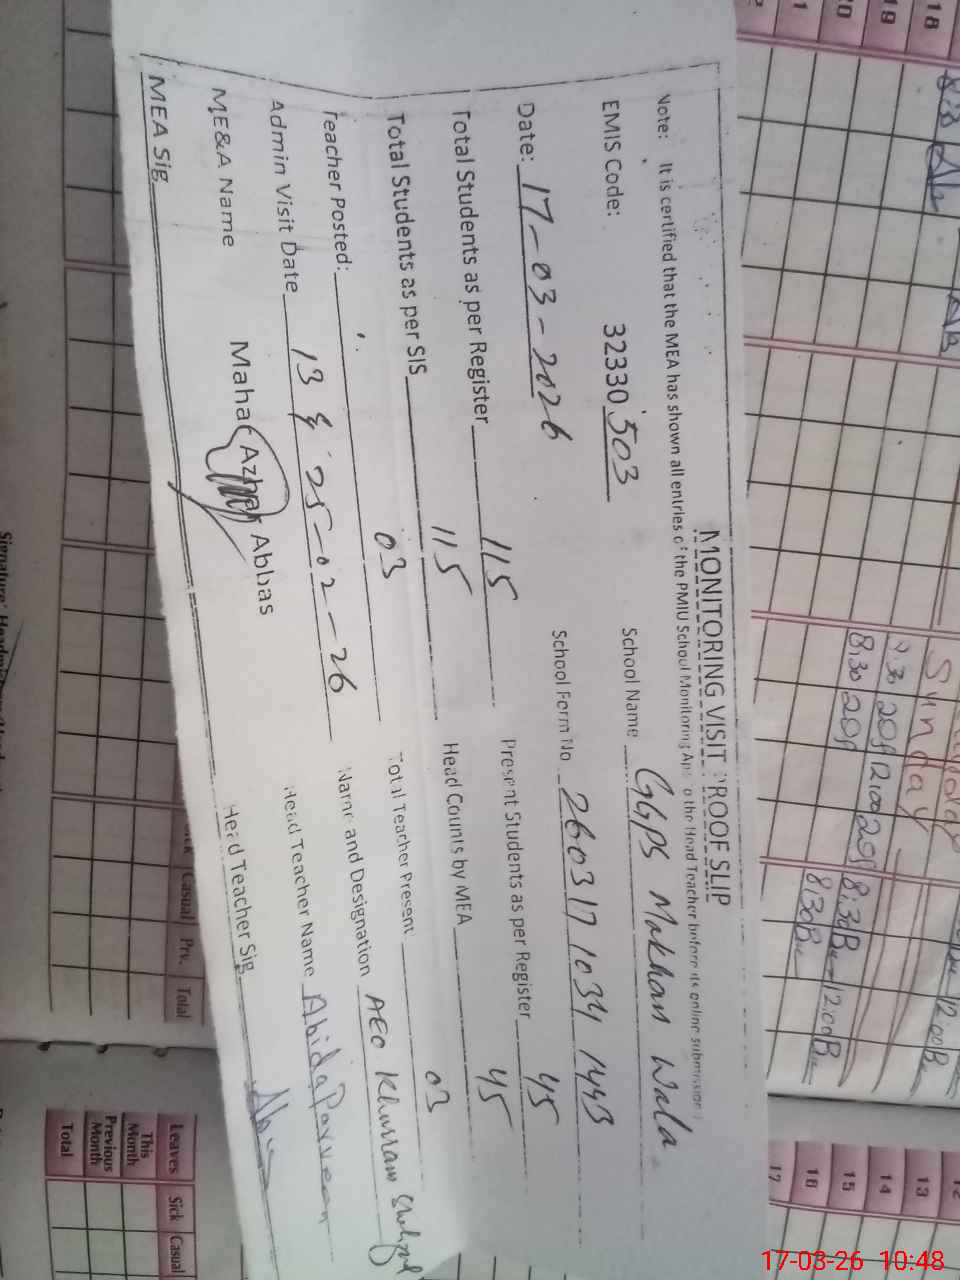 MONITORING VISIT PROOF SLIP
Note: It is certified that the MEA has shown all entries of the PMIU School Monitoring App to the Head Teacher before its online submission
EMIS Code: 32330503 School Name GGPS Makhan Wala
Date: 17-03-2026 School Form No 2603171034 1443
Total Students as per Register 115 Present Students as per Register 45
Total Students as per SIS 115 Head Counts by MEA 45
Teacher Posted: 03 Total Teacher Present 03
Admin Visit Date 13 & 25-02-26 Name and Designation AEO Khurram
ME&A Name Mahar Azhar Abbas Head Teacher Name Abida Parveen
MEA Sig Head Teacher Sig
18
19
20
Sunday
8:30 12:00 8:30 12:00
8:30 8:30
12
13
14
15
16
17
Casual Prv. Total
Leaves Sick Casual
This Month
Previous Month
Total
17-03-26 10:48